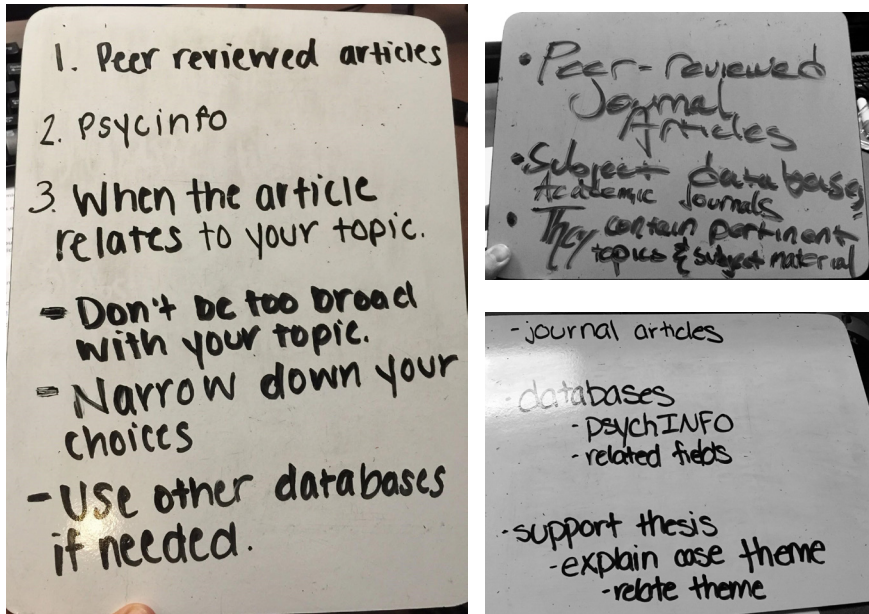 1. Peer reviewed articles
2. Psycinfo
3. When the article
relates to your topic.
- Don't be too broad
with your topic.
- Narrow down your
choices
- Use other databases
if needed.
• Peer-reviewed
Journal
Articles
• Subject databases,
Academic Journals
• They contain pertinent
topics & subject material
- journal articles
- databases
- psychINFO
- related fields
- support thesis
- explain case theme
- relate theme